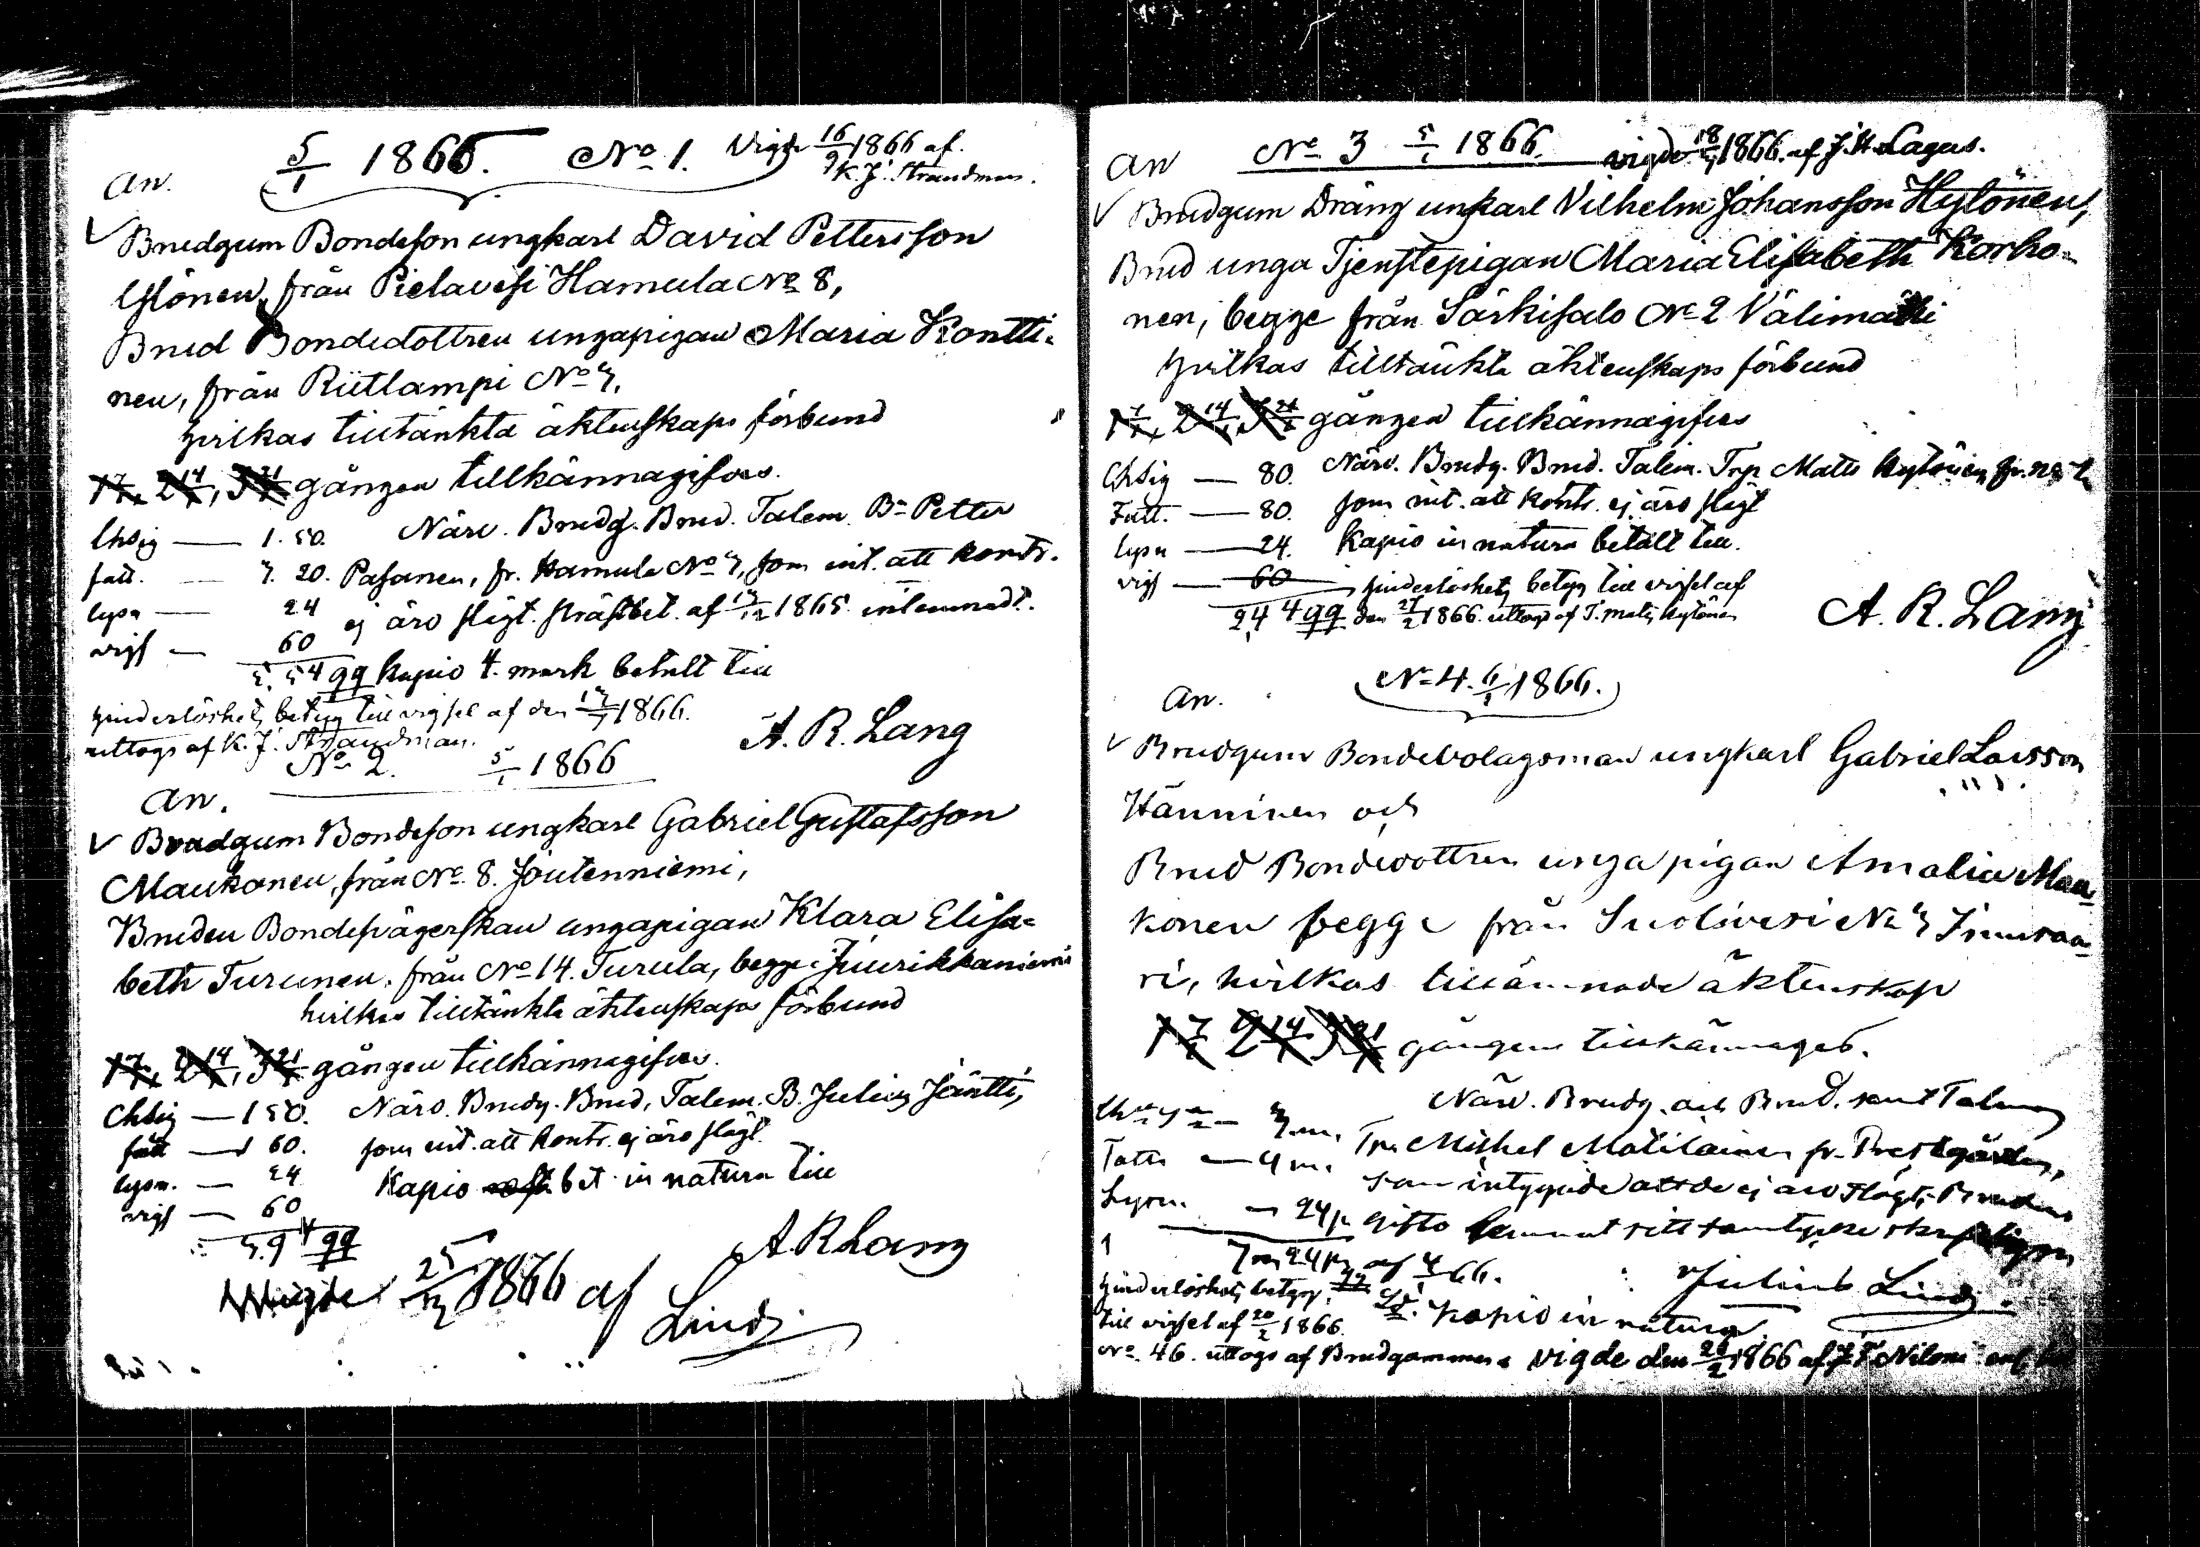 5/1 1866. No 1. Vigde 16/9 1866 af
K. J. Strandman.
An.
Brudgum Bondeson ungkarl David Pettersson
Ylönen, från Pielavesi Hamula No 8,
Brud Bondedottren ungapigan Maria Kontti-
nen, från Riitlampi No 7.
hvilkas tilltänkta äktenskaps förbund
1 7/1, 2 14/1, 3 21/1 gången tillkännagifves.
Chsig — 1. 50. Närv. Brudg. Brud. Talem. Bn Petter
fatt. — 7. 20. Pasanen, fr. Hamula No 7, som int. att kontr.
lysn — 24 ej äro slägt. 1865 inlemnadt.
vigs — 60
kapio 4. mark betalt till
hinderlöshets betyg till vigsel af den 1866.
uttogs af K. J. Strandman.
A. R. Lang
No 2. 5/1 1866
An.
Brudgum Bondeson ungkarl Gabriel Gustafsson
Maukonen, från No 8. Joutenniemi,
Bruden ungapigan Klara Elisa-
beth Turunen, från No 14. Turula, begge Juurikkaniemi
hvilkas tilltänkta äktenskaps förbund
1 7/1, 2 14/1, 3 21/1 gången tillkännagifves.
Chsig — 1 50. Närv. Brudg. Brud, Talem. B. Julius Jäntti,
fatt — 60. som int. att kontr. ej äro slägt.
lysn. — 24 Kapio bet. in natura till
vigs — 60
A. R. Lang
Vigde 1866 af
Lind
An No 3 5/1 1866. vigde 1866. af J. H. Lagus.
Brudgum Dräng unkarl Vilhelm Johansson Hytönen,
Brud unga Tjenstepigan Maria Elisabeth Korho-
nen, begge från Särkisalo No 2 Välimäki
hvilkas tilltänkta äktenskaps förbund
1 7/1, 2 14/1, 3 21/1 gången tillkännagifves
Chsig — 80. Närv. Brudg. Brud. Talem. Trp Matts Hytönen
Fatt. — 80. som int. att kontr. ej äro slägt
lysn — 24. Kapio in natura betalt till.
vigs — 60 hinderlöshets betyg till vigsel af
den 1866. uttogs af T. Matts Hytönen
A. R. Lang
No 4. 6/1 1866.
An.
Brudgum Bondebolagsman ungkarl Gabriel Larsson
Hänninen och
Brud Bondedottren unga pigan Amalia Mau-
konen begge från Suolivesi No 7 Iinnsaa-
ri, hvilkas tillämnade äktenskap
1 7/1 2 14/1 3 21/1 gången tillkännages.
Närv. Brudg. och Brud. samt Talm
Trp Michel Matilainen fr. Prestgården,
Fatts — 4 m. som intygade att de ej äro slägt, Brudens
Lysn. — 24 p. gifto lemnat sitt samtycke skriftligen
7 m 24 p. af
hinderlöshets betyg Julius Lind.
till vigsel af 20/2 1866. kapio in natura
No 46. uttogs af Brudgummen vigde den 1866 af